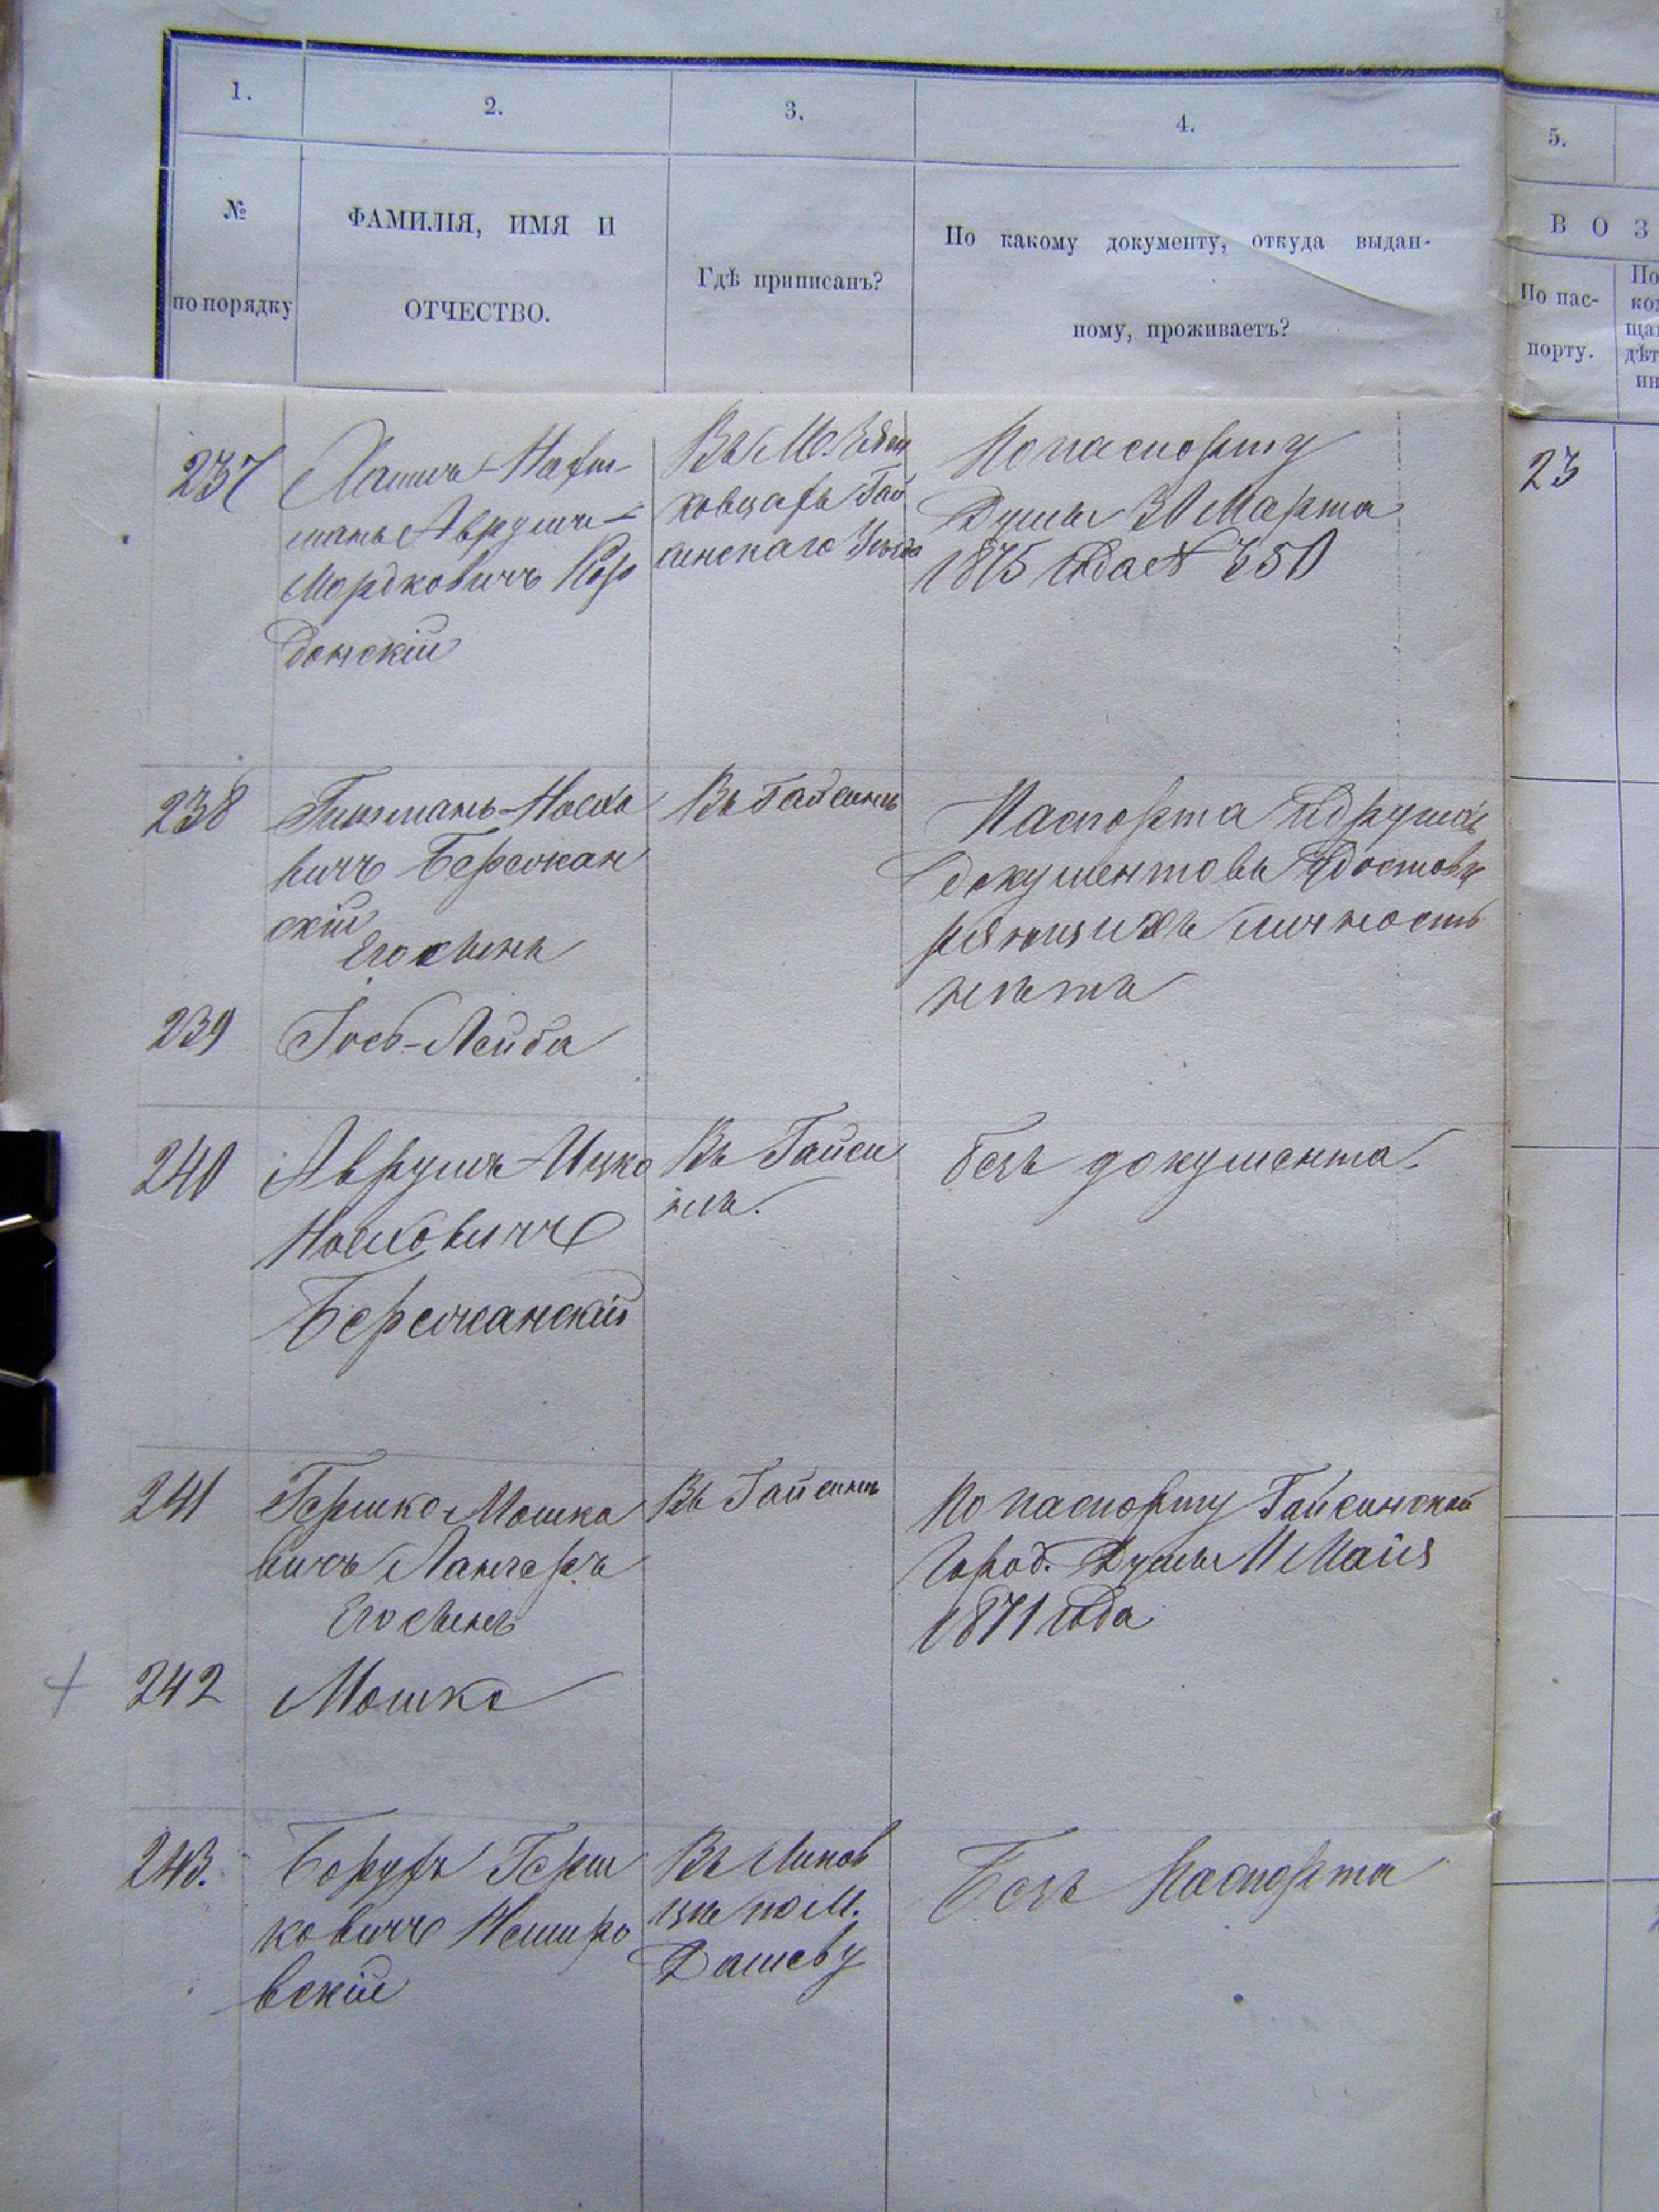 1.
2.
3.
4.
5.
№
по порядку
ФАМИЛІЯ, ИМЯ И
ОТЧЕСТВО.
Гдѣ приписанъ?
По какому документу, откуда выдан-
ному, проживаетъ?
В О З
По пас-
порту.
По
ко
ща
дѣт
ин
237
Мордковичъ
донскій
Въ М.
ковцахъ Гай
синскаго Уѣзда
По паспорту
Думы 30 Марта
1875 года № 350
23
238
Гершманъ Носко
вичъ Бережан
скій
Его сынъ
Въ Гайсинѣ
Паспорта и другихъ
документовъ удостовѣ
ряющихъ личность
нѣтъ
239
Іось-Лейба
240
Аврумъ-Ицко
Носковичъ
Бережанскій
Въ Гайси
нѣ.
безъ документа.
241
Гершко Мошко
вичъ Лангеръ
Его сынъ
Въ Гайсинѣ
По паспорту Гайсинской
Город. Думы 11 Маія
1871 года
242
Мошко
243.
Борухъ Герш
ковичъ Немиро
вскій
Въ Липов
цѣ по М.
Дашеву
Безъ Паспорта